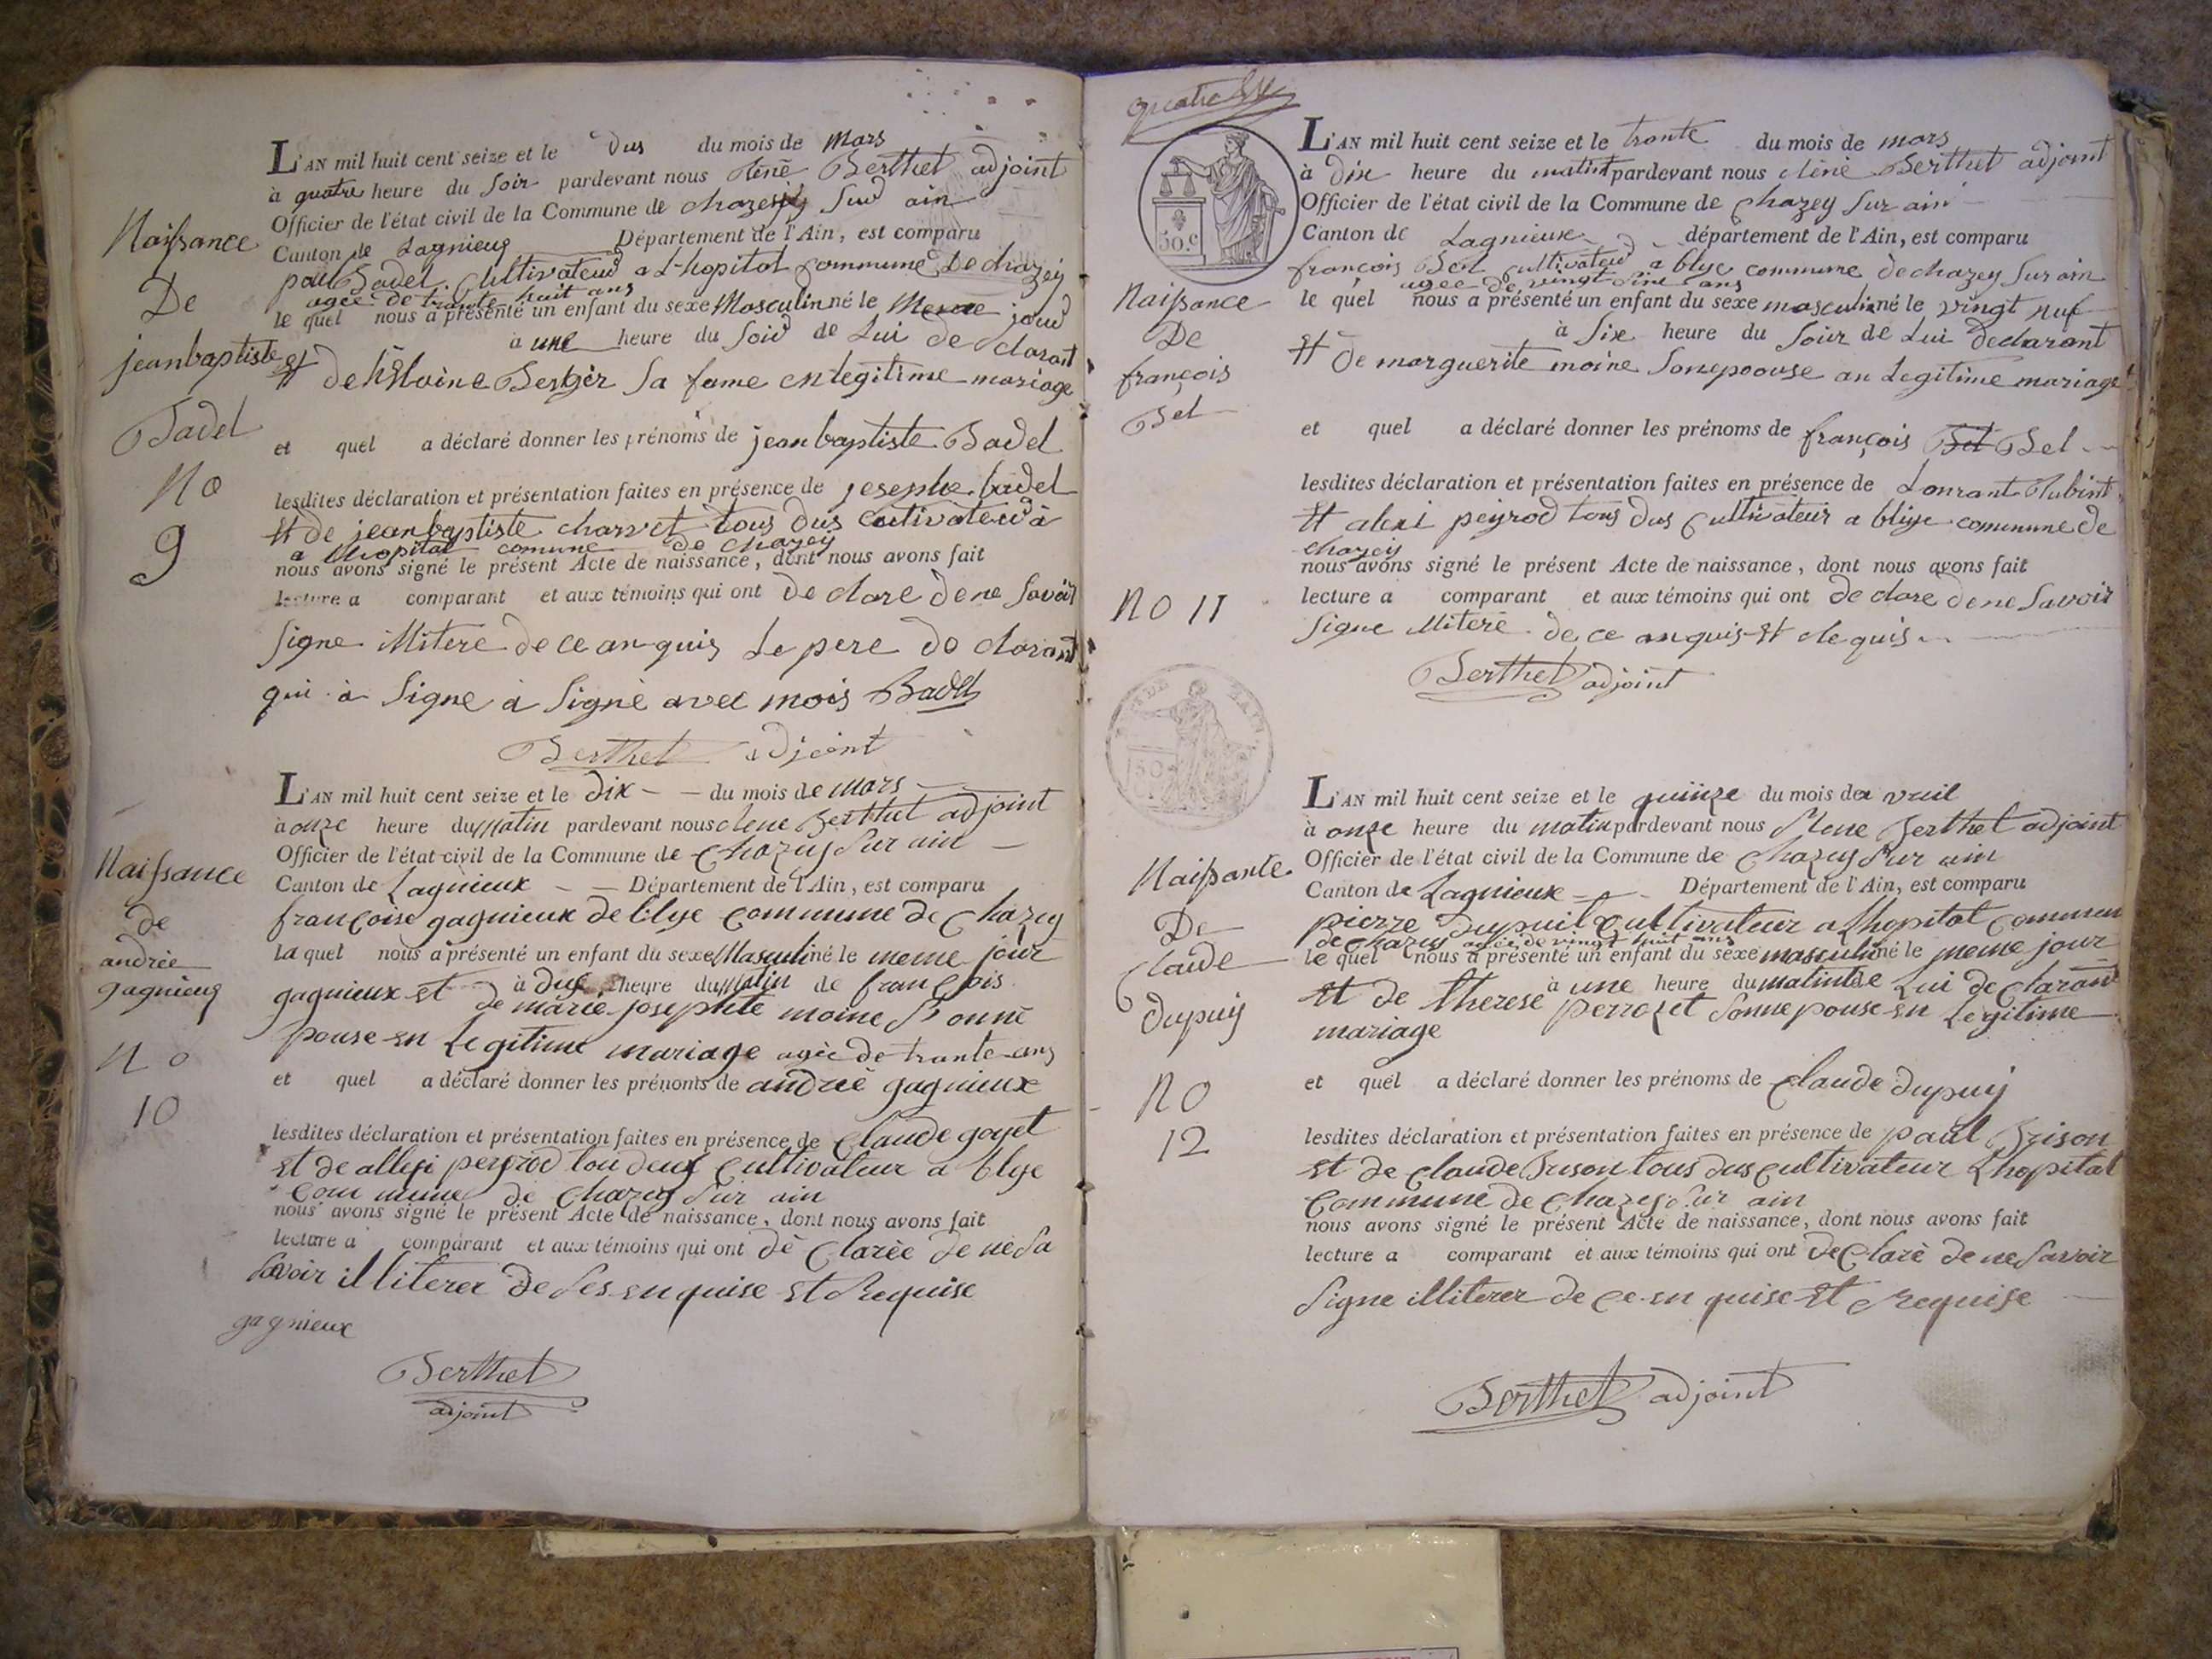 L'AN mil huit cent seize et le dus du mois de mars
à quatre heure du soir pardevant nous Béné Berthet adjoint
Officier de l'état civil de la Commune de chazeij sur ain
Canton de Lagnieug Département de l'Ain, est comparu
paul Badel Cultivateur a L-hopital commune De chazey
agee de trante huit ans
le quel nous a présenté un enfant du sexe Masculin né le Meme jour
à une heure du soir de Lui de clarant
et de Berger sa fame en legitime mariage
et quel a déclaré donner les prénoms de jean baptiste Badel
lesdites déclaration et présentation faites en présence de josephe badel
et de jean baptiste charvet tous dus cultivateur à
a lhopital comune de chazey
nous avons signé le présent Acte de naissance, dont nous avons fait
lecture a comparant et aux témoins qui ont de clare de ne savoir
signe illitere de ce an quis Le pere de clarant
qui à signe à signé avec mois Badel
Berthet adjoint
Naissance
De
jean baptiste
Badel
No
9
L'AN mil huit cent seize et le dix du mois de mars
à onze heure du matin pardevant nous Rene Berthet adjoint
Officier de l'état civil de la Commune de Chazey sur ain
Canton de Lagnieux Département de l'Ain, est comparu
françoise gagnieux de blye commune de Chazey
la quel nous a présenté un enfant du sexe Masculin né le meme jour
à dux heure du matin de françois
gagnieux et de marie josephte moine sonne
pouse en Legitime mariage agèe de trante ans
et quel a déclaré donner les prénoms de andreè gagnieux
lesdites déclaration et présentation faites en présence de Claude goyet
et de allexi peyrod tou deux cultivateur a blye
commune de Chazey sur ain
nous avons signé le présent Acte de naissance, dont nous avons fait
lecture a comparant et aux témoins qui ont dè Clarèe de ne sa
savoir illiterer de ses enquise et Requise
gagnieux
Berthet
adjoint
Naissance
de
andrèe
gagnieug
No
10
quatre
50. c
L'AN mil huit cent seize et le tronte du mois de mars
à dix heure du matin pardevant nous Réné Berthet adjoint
Officier de l'état civil de la Commune de Chazey sur ain
Canton de Lagnieux département de l'Ain, est comparu
françois Bel cultivateur a blye commune de chazey sur ain
agee de vingt ans
le quel nous a présenté un enfant du sexe masculin né le vingt nuf
à six heure du soir de Lui declarant
et de marguerite moine sonepoouse an Legitime mariage
et quel a déclaré donner les prénoms de françois Bel Bel
lesdites déclaration et présentation faites en présence de Lourant
et alexi peyrod tous dus cultivateur a blye commune de
chazeis
nous avons signé le présent Acte de naissance, dont nous avons fait
lecture a comparant et aux témoins qui ont de clare de ne savoir
signe illiteré de ce anquis et Requis
Berthet adjoint
Naissance
De
françois
Bel
NO 11
L'AN mil huit cent seize et le quinze du mois de a vril
à onze heure du matin pardevant nous Rene Berthet adjoint
Officier de l'état civil de la Commune de Chazey sur ain
Canton de Lagnieux Département de l'Ain, est comparu
pierre Dupuil cultivateur a Lhopital commun
de chazey agèe de vingt huit ans
le quel nous a présenté un enfant du sexe masculin né le meme jour
à une heure du matin de Lui de clarant
et de therese perrozet sonne pouse en Legitime
mariage
et quel a déclaré donner les prénoms de Claude dupuij
lesdites déclaration et présentation faites en présence de paul Brison
et de Claude Brison tous dus cultivateur Lhopital
Commune de Chazey sur ain
nous avons signé le présent Acte de naissance, dont nous avons fait
lecture a comparant et aux témoins qui ont deClarè de ne savoir
signe illiterer de ce en quise et Requise
Berthet adjoint
Naissante
De
Claude
dupuij
NO
12